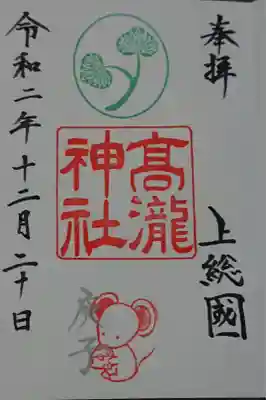 奉拝
上総國
髙瀧
神社
庚子
令和二年十二月二十日